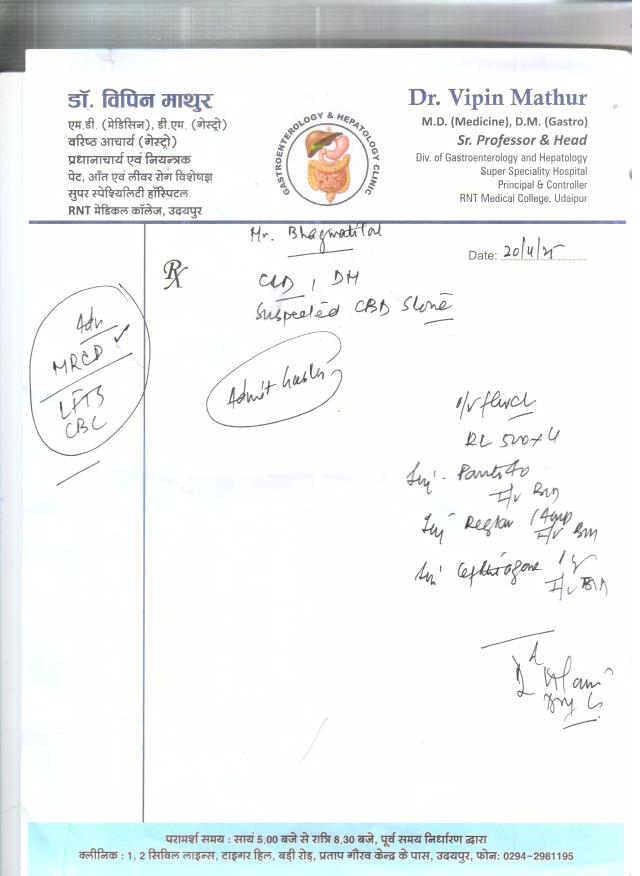 डॉ. विपिन माथुर
एम.डी. (मेडिसिन), डी.एम. (गेस्ट्रो)
वरिष्ठ आचार्य (गेस्ट्रो)
प्रधानाचार्य एवं नियन्त्रक
पेट, आँत एवं लीवर रोग विशेषज्ञ
सुपर स्पेश्यिलिटी हॉस्पिटल
RNT मेडिकल कॉलेज, उदयपुर
GASTROENTEROLOGY & HEPATOLOGY CLINIC
Dr. Vipin Mathur
M.D. (Medicine), D.M. (Gastro)
Sr. Professor & Head
Div. of Gastroenterology and Hepatology
Super Speciality Hospital
Principal & Controller
RNT Medical College, Udaipur
Mr. Bhagwatilal
Date: 20/4/25
Rx
DM
Suspected CBD Stone
Adv
MRCP
LFTs
CBC
Admit
i/v fluid
RL 500x4
Inj. Panto 40
i/v BD
Inj Reglan 1 Amp
i/v
Inj 1 g
i/v BD
परामर्श समय : सायं 5.00 बजे से रात्रि 8.30 बजे, पूर्व समय निर्धारण द्वारा
क्लीनिक : 1, 2 सिविल लाइन्स, टाइगर हिल, बड़ी रोड़, प्रताप गौरव केन्द्र के पास, उदयपुर, फोन: 0294-2981195